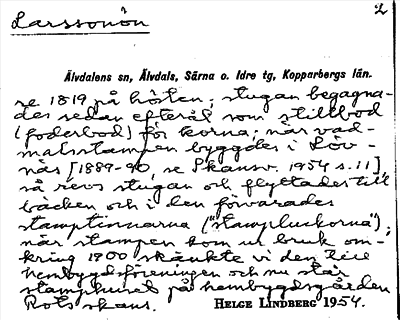 Larssonön
2
Älvdalens sn, Älvdals, Särna o. Idre tg, Kopparbergs län.
se 1819 på hösten; stugan begagna-
des sedan efteråt som stillbod
(foderbod) för korna; när vad-
malsstampen byggdes i Löv-
näs [1889-90, se Skansv. 1954 s. 11],
så revs stugan och flyttades till
bäcken och i den förvarades
stamptinnarna ("stampluckorna");
när stampen kom ur bruk om-
kring 1900 skänkte vi den till
hembygdsföreningen och nu står
stamphuset på hembygdsgården
Rots skans.
HELGE LINDBERG 1954.